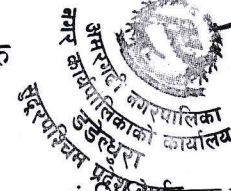 अमरगढी नगरपालिका
नगर कार्यपालिकाको कार्यालय
डडेल्धुरा
सुदूरपश्चिम प्रदेश